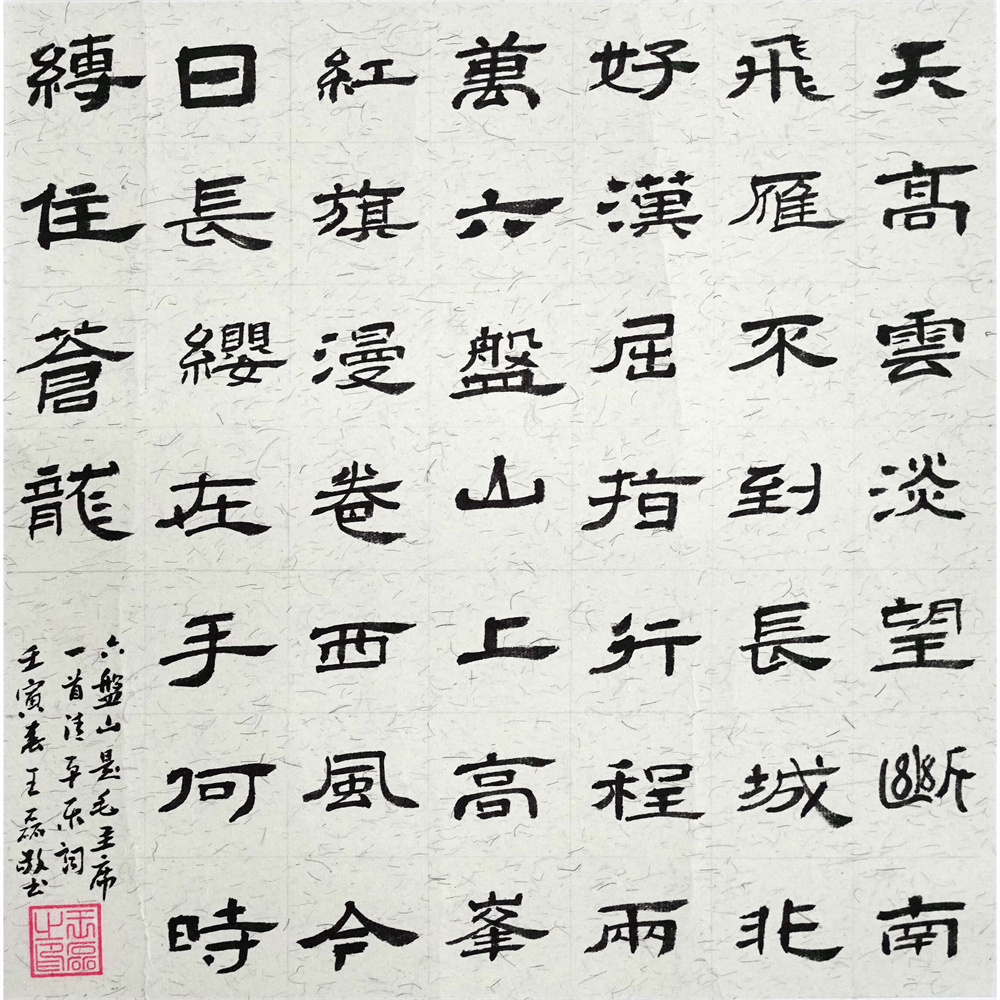 天高雲淡望斷南
飛雁不到長城非
好漢屈指行程兩
萬六盤山上高峯
紅旗漫卷西風今
日長纓在手何時
縛住蒼龍
六盤山是毛主席
一首清平乐詞
壬寅春王磊敬书
王磊之印